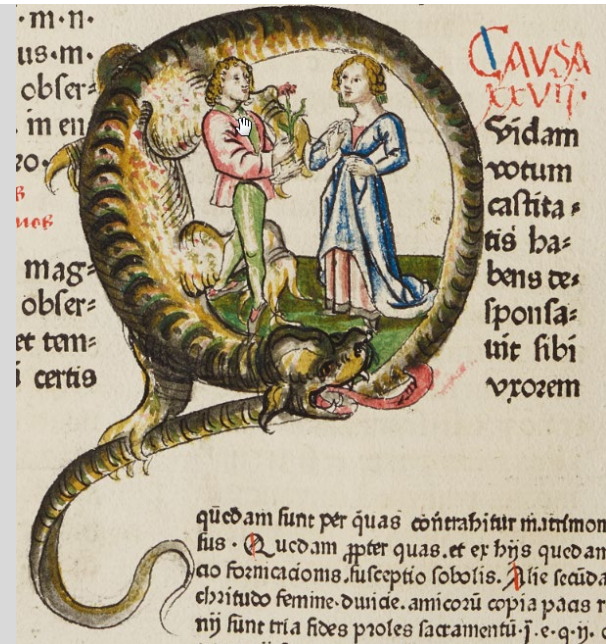 ·m·n·
us·m·
obser=
. in en
ꝛo.
mag=
obser=
et tem=
i certis
CAVSA
XXVIJ.
Vidam
votum
castita=
tis ha=
bens de=
sponsa=
uit sibi
vxorem
quēdam sunt per quas contrahitur matrimon
sus. Quedam ꝓpter quas. et ex hijs quedam
cio fornicacionis. susceptio sobolis. Alie secūda
chritudo femine. diuicie. amicorū copia pacis r
nij sunt tria fides proles sacramentū. j. e. q. ij.